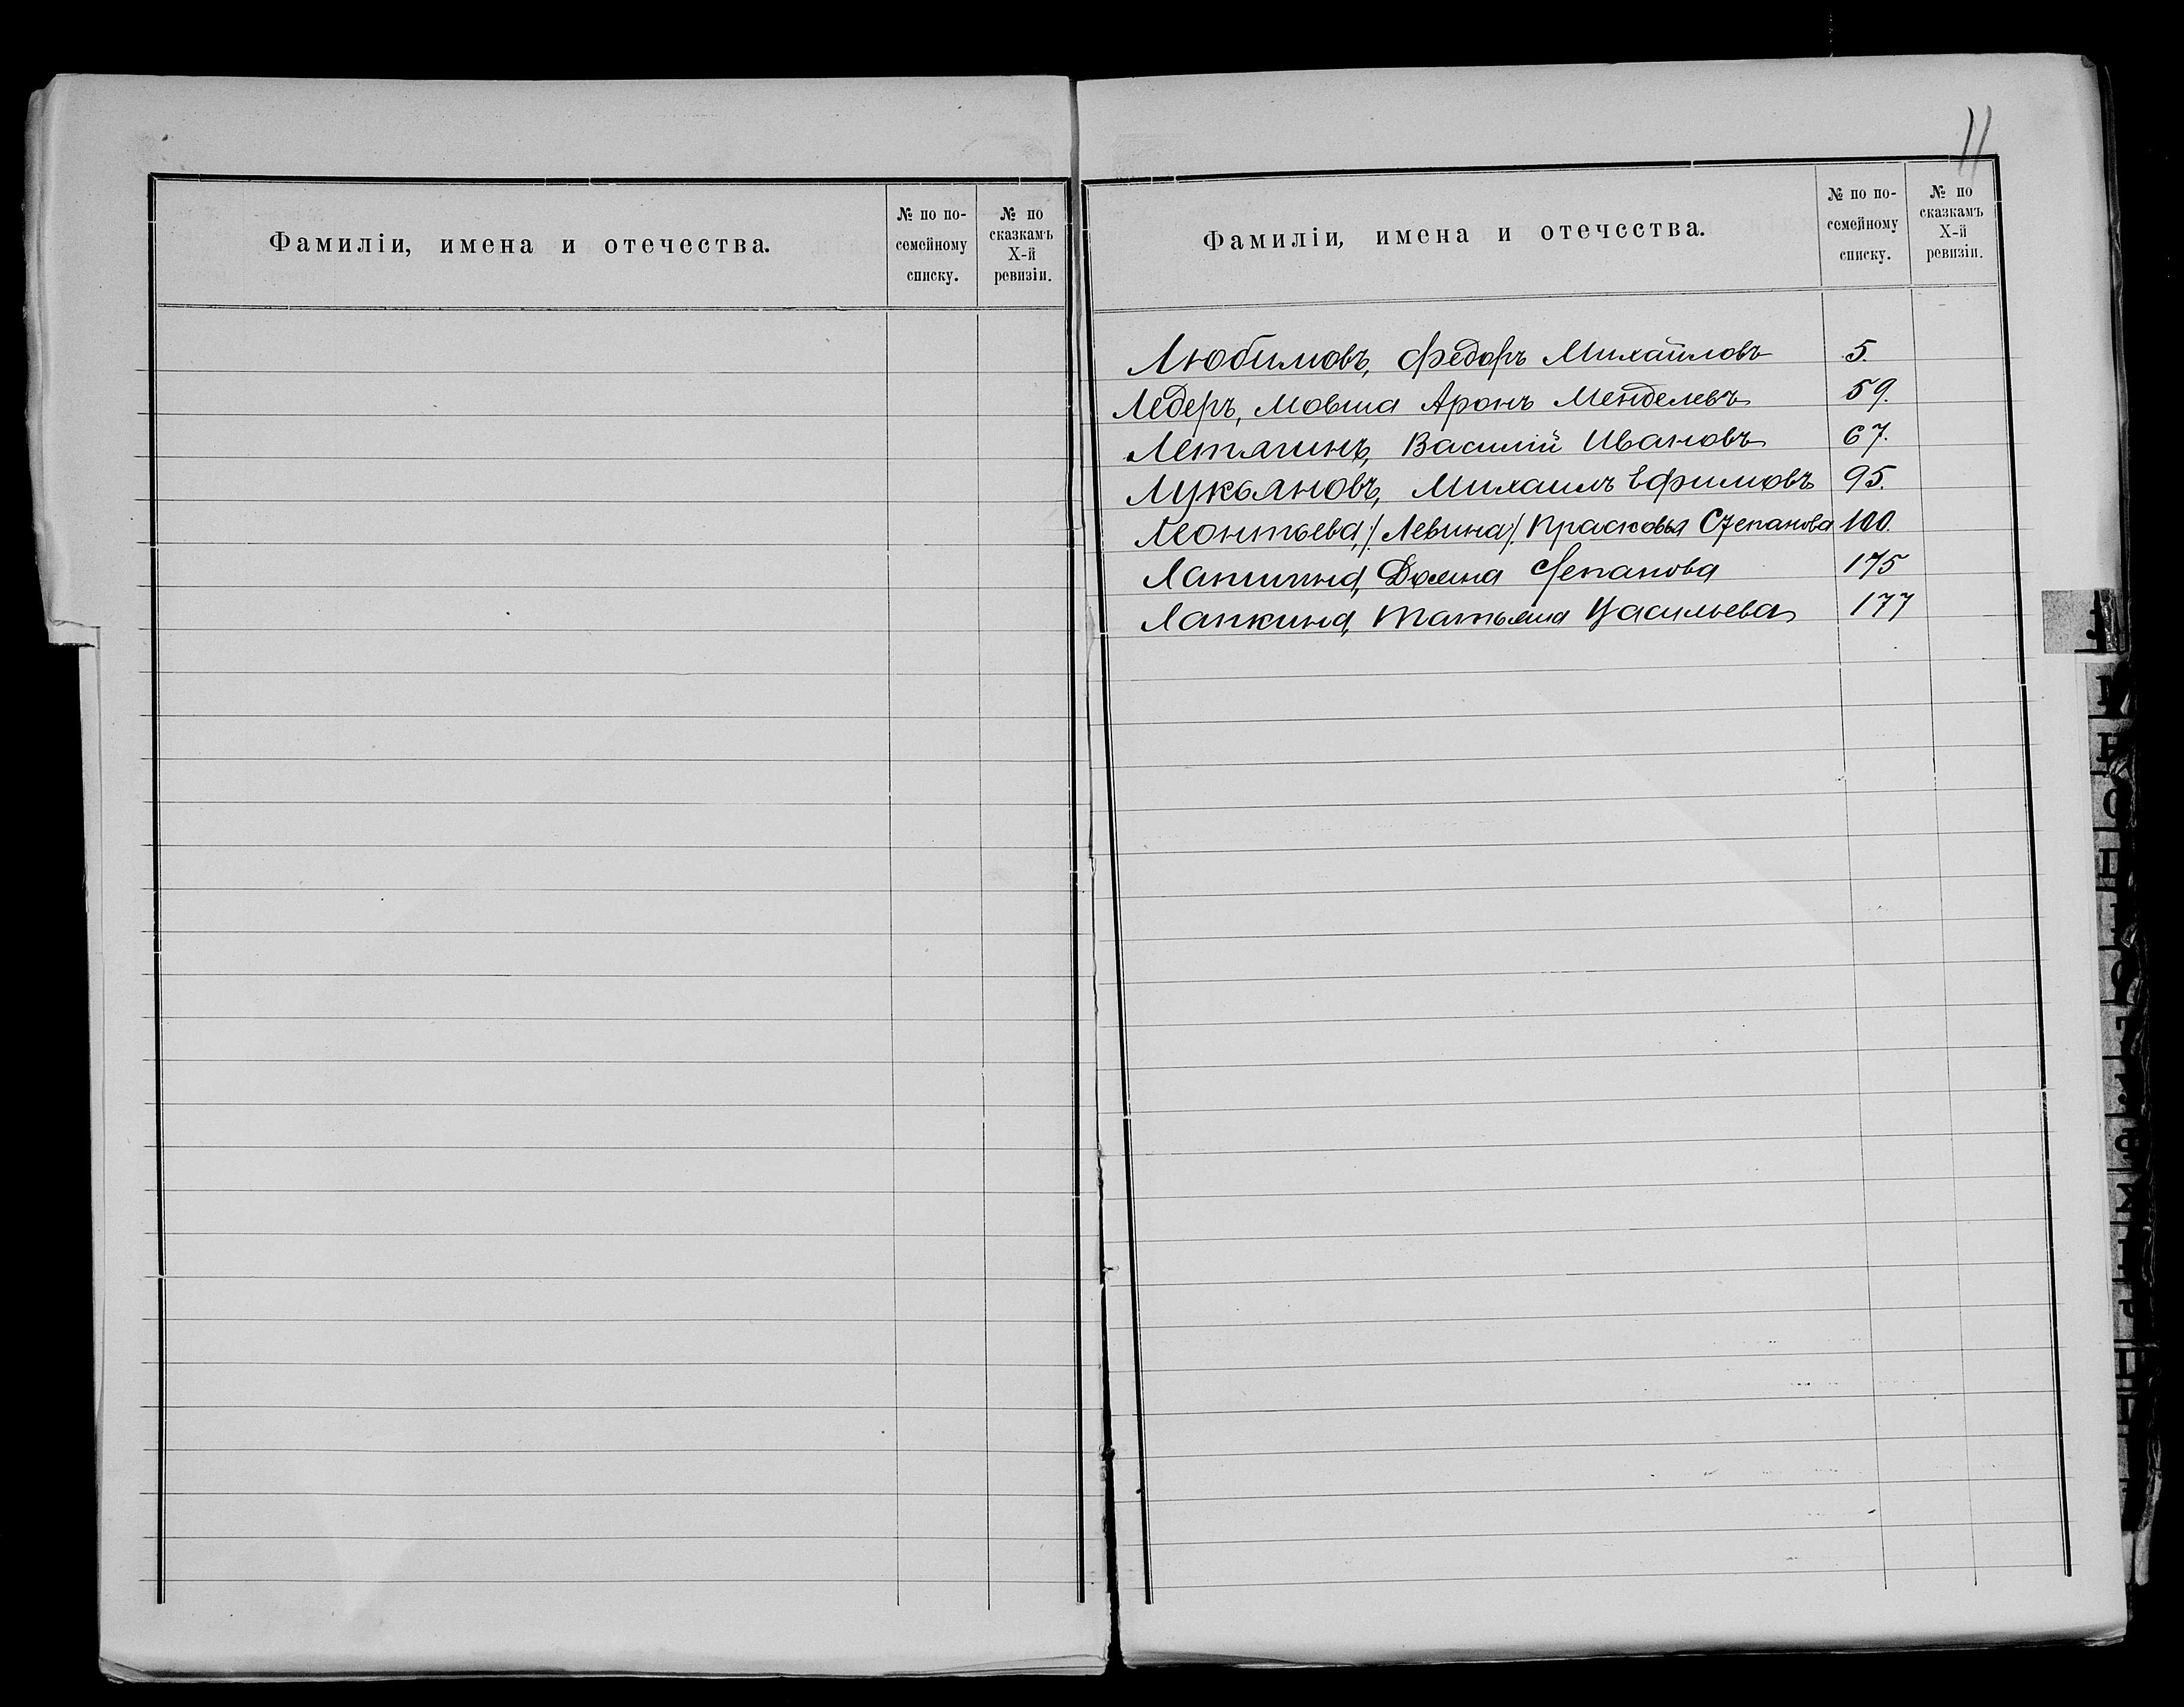 11
Фамиліи, имена и отечества.
№ по по-
семейному
списку.
№ по
сказкамъ
X-й
ревизіи.
Фамиліи, имена и отечества.
№ по по-
семейному
списку.
№ по
сказкамъ
X-й
ревизіи.
Любимовъ, Федоръ Михайловъ 5.
Ледеръ, Мовша Аронъ Менделевъ 59.
Летягинъ, Василій Ивановъ 67.
Лукьяновъ, Михаилъ Ефимовъ 95.
Леонтьева, /Левина/. Прасковья Степанова 100.
Степанова 175
Лапкина, Татьяна Васильева 177